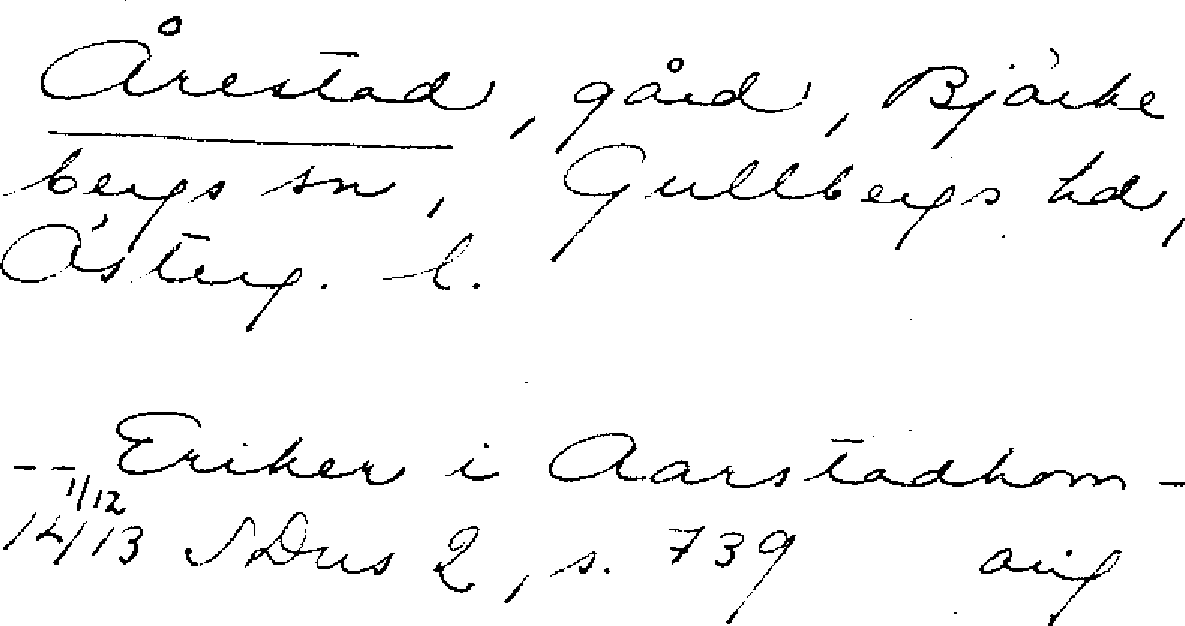 Årestad, gård, Björke
bergs sn, Gullbergs hd,
Österg. l.
-- Eriker i Aarstadhom -
1/12
1413 SDns 2, s. 739